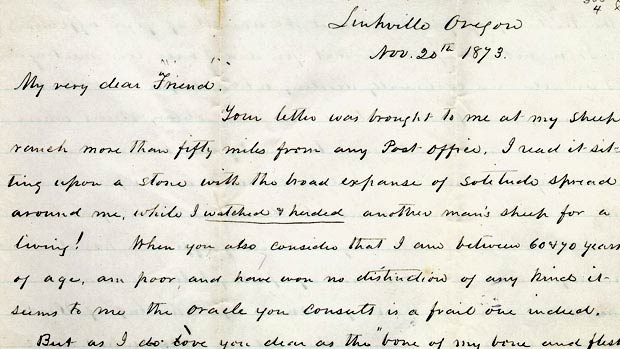 Linkville Oregon
Nov. 20th 1873.
My very dear Friend.
Your letter was brought to me at my sheep
ranch more than fifty miles from any Post office. I read it sit-
ting upon a stone with the broad expanse of solitude spread
around me, while I watched & herded another man's sheep for a
living! When you also consider that I am between 60 & 70 years
of age, am poor and have won no distinction of any kind it
seems to me the oracle you consult is a frail one indeed.
But as I do love you dear as the "bone of my bone and flesh